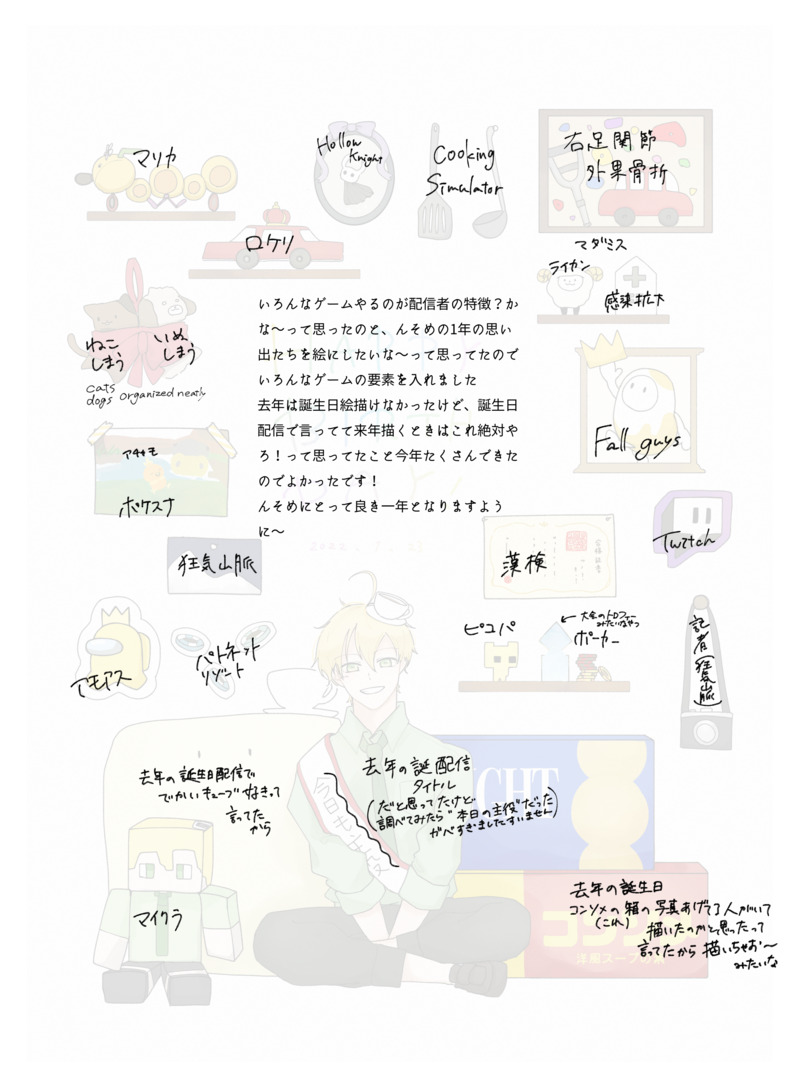 マリカ
Hollow
Knight
Cooking
Simulator
右足関節
外果骨折
ロケリ
マダミス
ライカン
感染拡大
ねこ
しまう
いぬ
しまう
cats
dogs organized neatly
いろんなゲームやるのが配信者の特徴？か
な〜って思ったのと、んそめの1年の思い
出たちを絵にしたいな〜って思ってたので
いろんなゲームの要素を入れました
去年は誕生日絵描けなかったけど、誕生日
配信で言ってて来年描くときはこれ絶対や
ろ！って思ってたこと今年たくさんできた
のでよかったです！
んそめにとって良き一年となりますよう
に〜
Fall guys
アチャモ
ポケスナ
狂気山脈
漢検
Twitch
アモアス
パトネット
リゾート
ピコパ
←大会のトロフィー
みたいなやつ
ポーカー
記者(狂気山脈)
去年の誕生日配信で
でかいキューブ好きって
言ってた
から
去年の誕配信
タイトル
(だと思ってたけど
調べてみたら"本日の主役"だった
ガバすぎましたすいません)
マイクラ
CHT
コンソメ
洋風スープの素
去年の誕生日
コンソメの箱の写真あげてる人がいて
(これ)
描いたのかと思ったって
言ってたから描いちゃお〜
みたいな